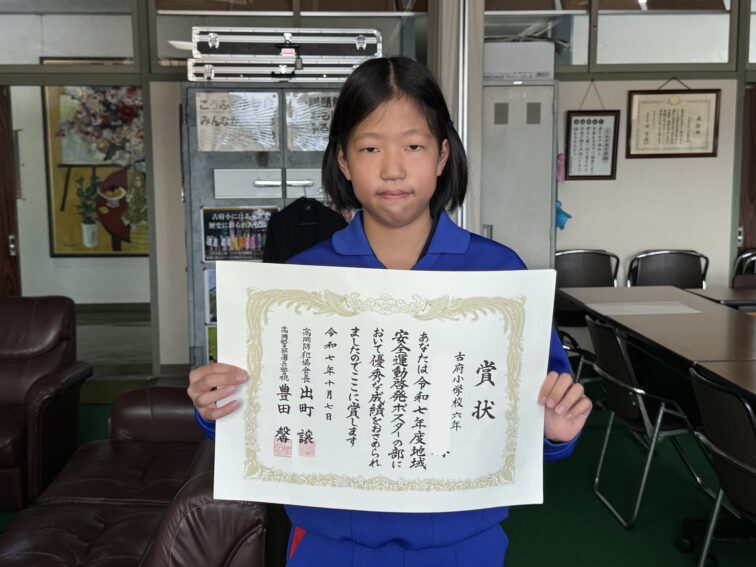 賞状
古府小学校六年
あなたは令和七年度地域
安全運動啓発ポスターの部に
おいて優秀な成績をおさめられ
ましたのでここに賞します
令和七年十月七日
高岡防犯協会長 出町 譲
高岡警察署長警視 豊田 馨
こうふ
みんな
古府小にはあ
歴史に彩られた